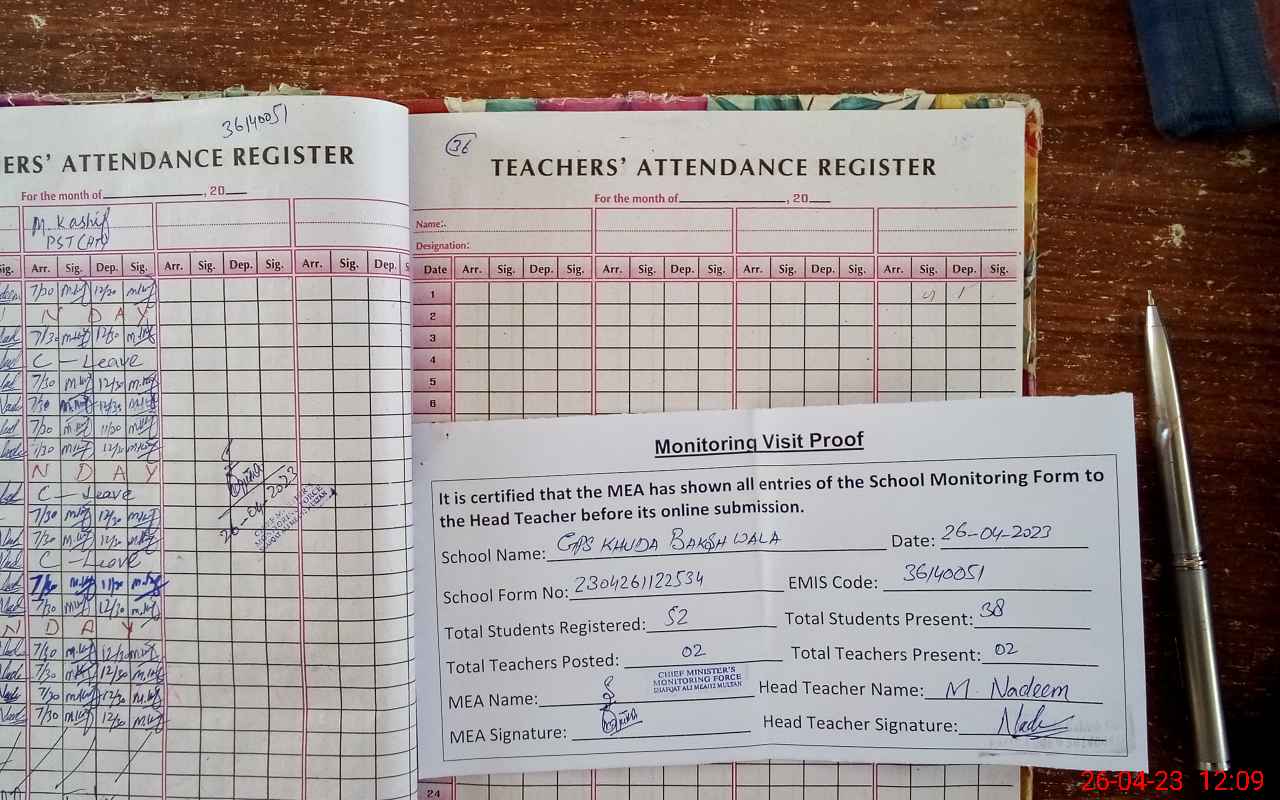 36140051
ERS' ATTENDANCE REGISTER
For the month of , 20
M. Kashif
PST (HT)
Sig. Arr. Sig. Dep. Sig. Arr. Sig. Dep. Sig. Arr. Sig. Dep. S
7/30 12/30
N D A Y
7/30 12/30
C - Leave
7/30 12/30
7/30 12/30
7/30 11/30
7/30 12/30
N D A Y
C - Leave
7/30 12/30
7/30 12/30
C - Leave
7/30 11/30
7/30 12/30
N D A Y
7/30 12/30
7/30 12/30
7/30 12/30
7/30 12/30
26-04-2023
36
TEACHERS' ATTENDANCE REGISTER
For the month of , 20
Name:
Designation:
Date Arr. Sig. Dep. Sig. Arr. Sig. Dep. Sig. Arr. Sig. Dep. Sig. Arr. Sig. Dep. Sig.
1
2
3
4
5
6
Monitoring Visit Proof
It is certified that the MEA has shown all entries of the School Monitoring Form to
the Head Teacher before its online submission.
School Name: GPS KHUDA BAKSH WALA Date: 26-04-2023
School Form No: 2304261122534 EMIS Code: 36140051
Total Students Registered: 52 Total Students Present: 38
Total Teachers Posted: 02 Total Teachers Present: 02
CHIEF MINISTER'S
MONITORING FORCE
SHAFQAT ALI MEA112 MULTAN
MEA Name: Head Teacher Name: M. Nadeem
MEA Signature: Head Teacher Signature:
24
26-04-23 12:09